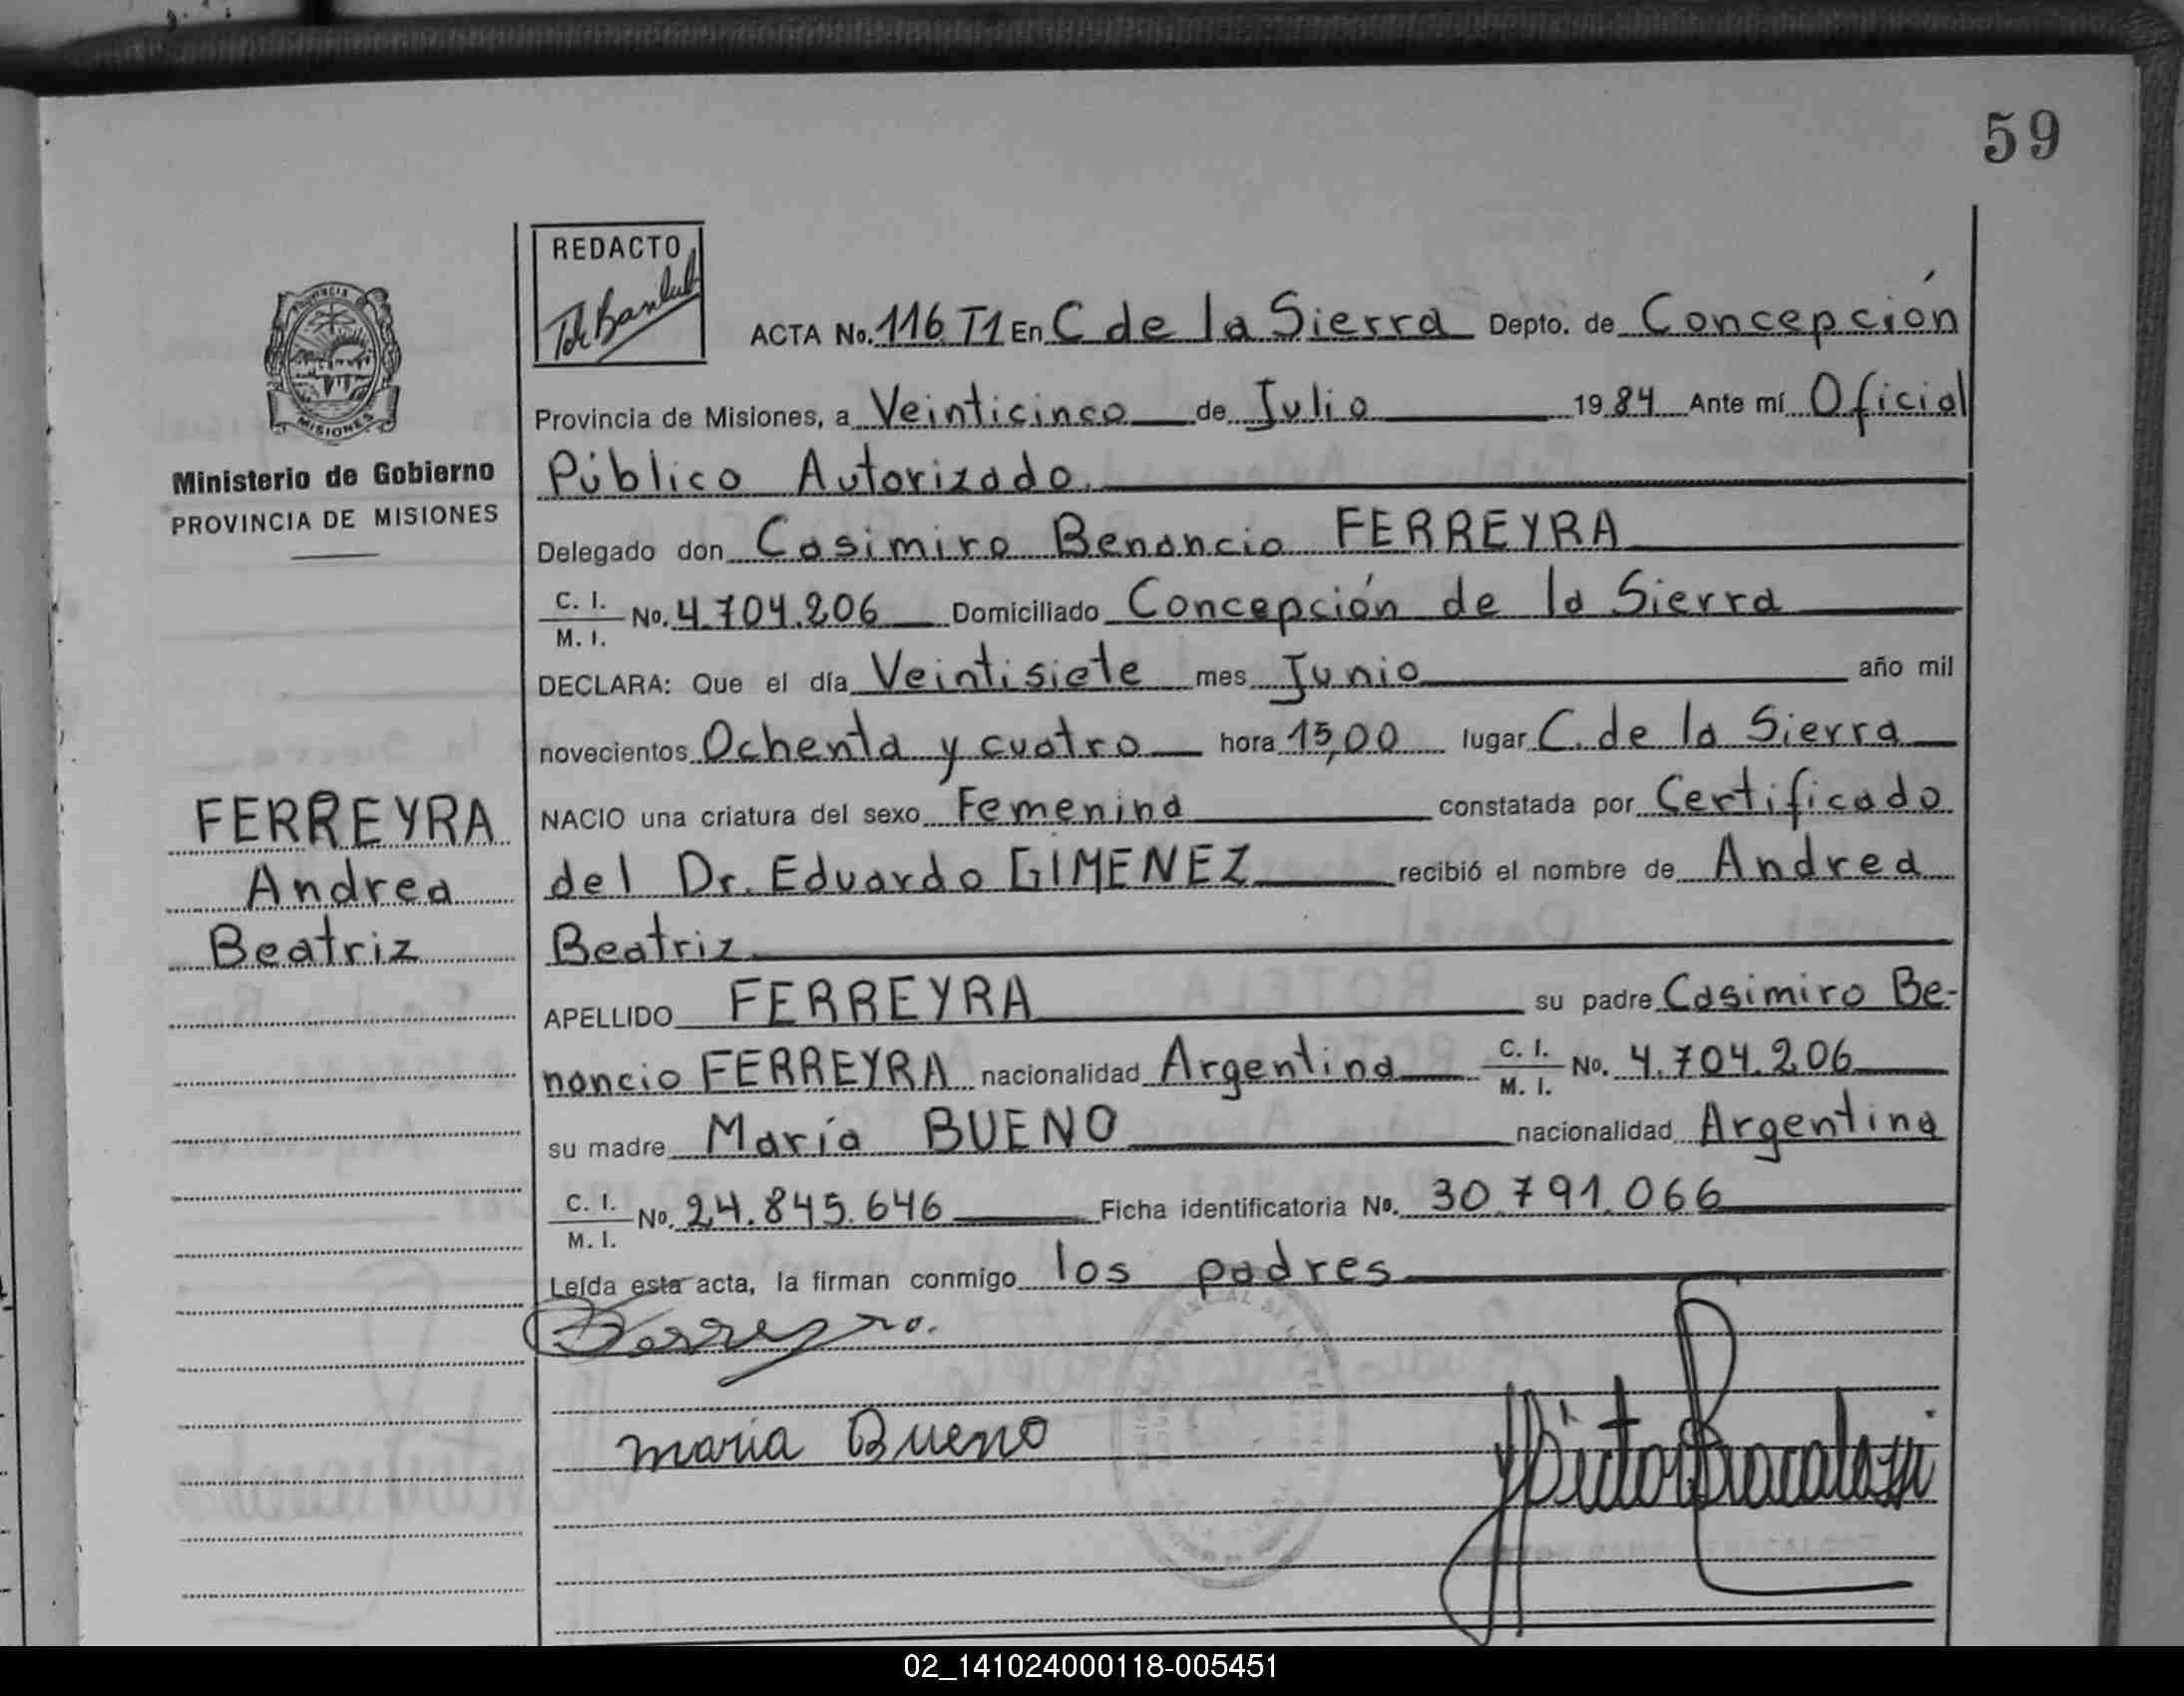 59
REDACTO
ACTA No. 116 T1 En C de la Sierra Depto. de Concepción
Provincia de Misiones, a Veinticinco de Julio 1984 Ante mí Oficial
Público Autorizado
Delegado don Casimiro Benancio FERREYRA
C. I. / M. I. No. 4.704.206 Domiciliado Concepción de la Sierra
DECLARA: Que el día Veintisiete mes Junio año mil
novecientos Ochenta y cuatro hora 15,00 lugar C. de la Sierra
NACIO una criatura del sexo Femenina constatada por Certificado
del Dr. Eduardo GIMENEZ recibió el nombre de Andrea
Beatriz
APELLIDO FERREYRA su padre Casimiro Be-
nancio FERREYRA nacionalidad Argentina C. I. / M. I. No. 4.704.206
su madre María BUENO nacionalidad Argentina
C. I. / M. I. No. 24.845.646 Ficha identificatoria No. 30.791.066
Leída esta acta, la firman conmigo los padres
Ferreyra.
maria Bueno
PROVINCIA
MISIONES
Ministerio de Gobierno
PROVINCIA DE MISIONES
FERREYRA
Andrea
Beatriz
02_141024000118-005451